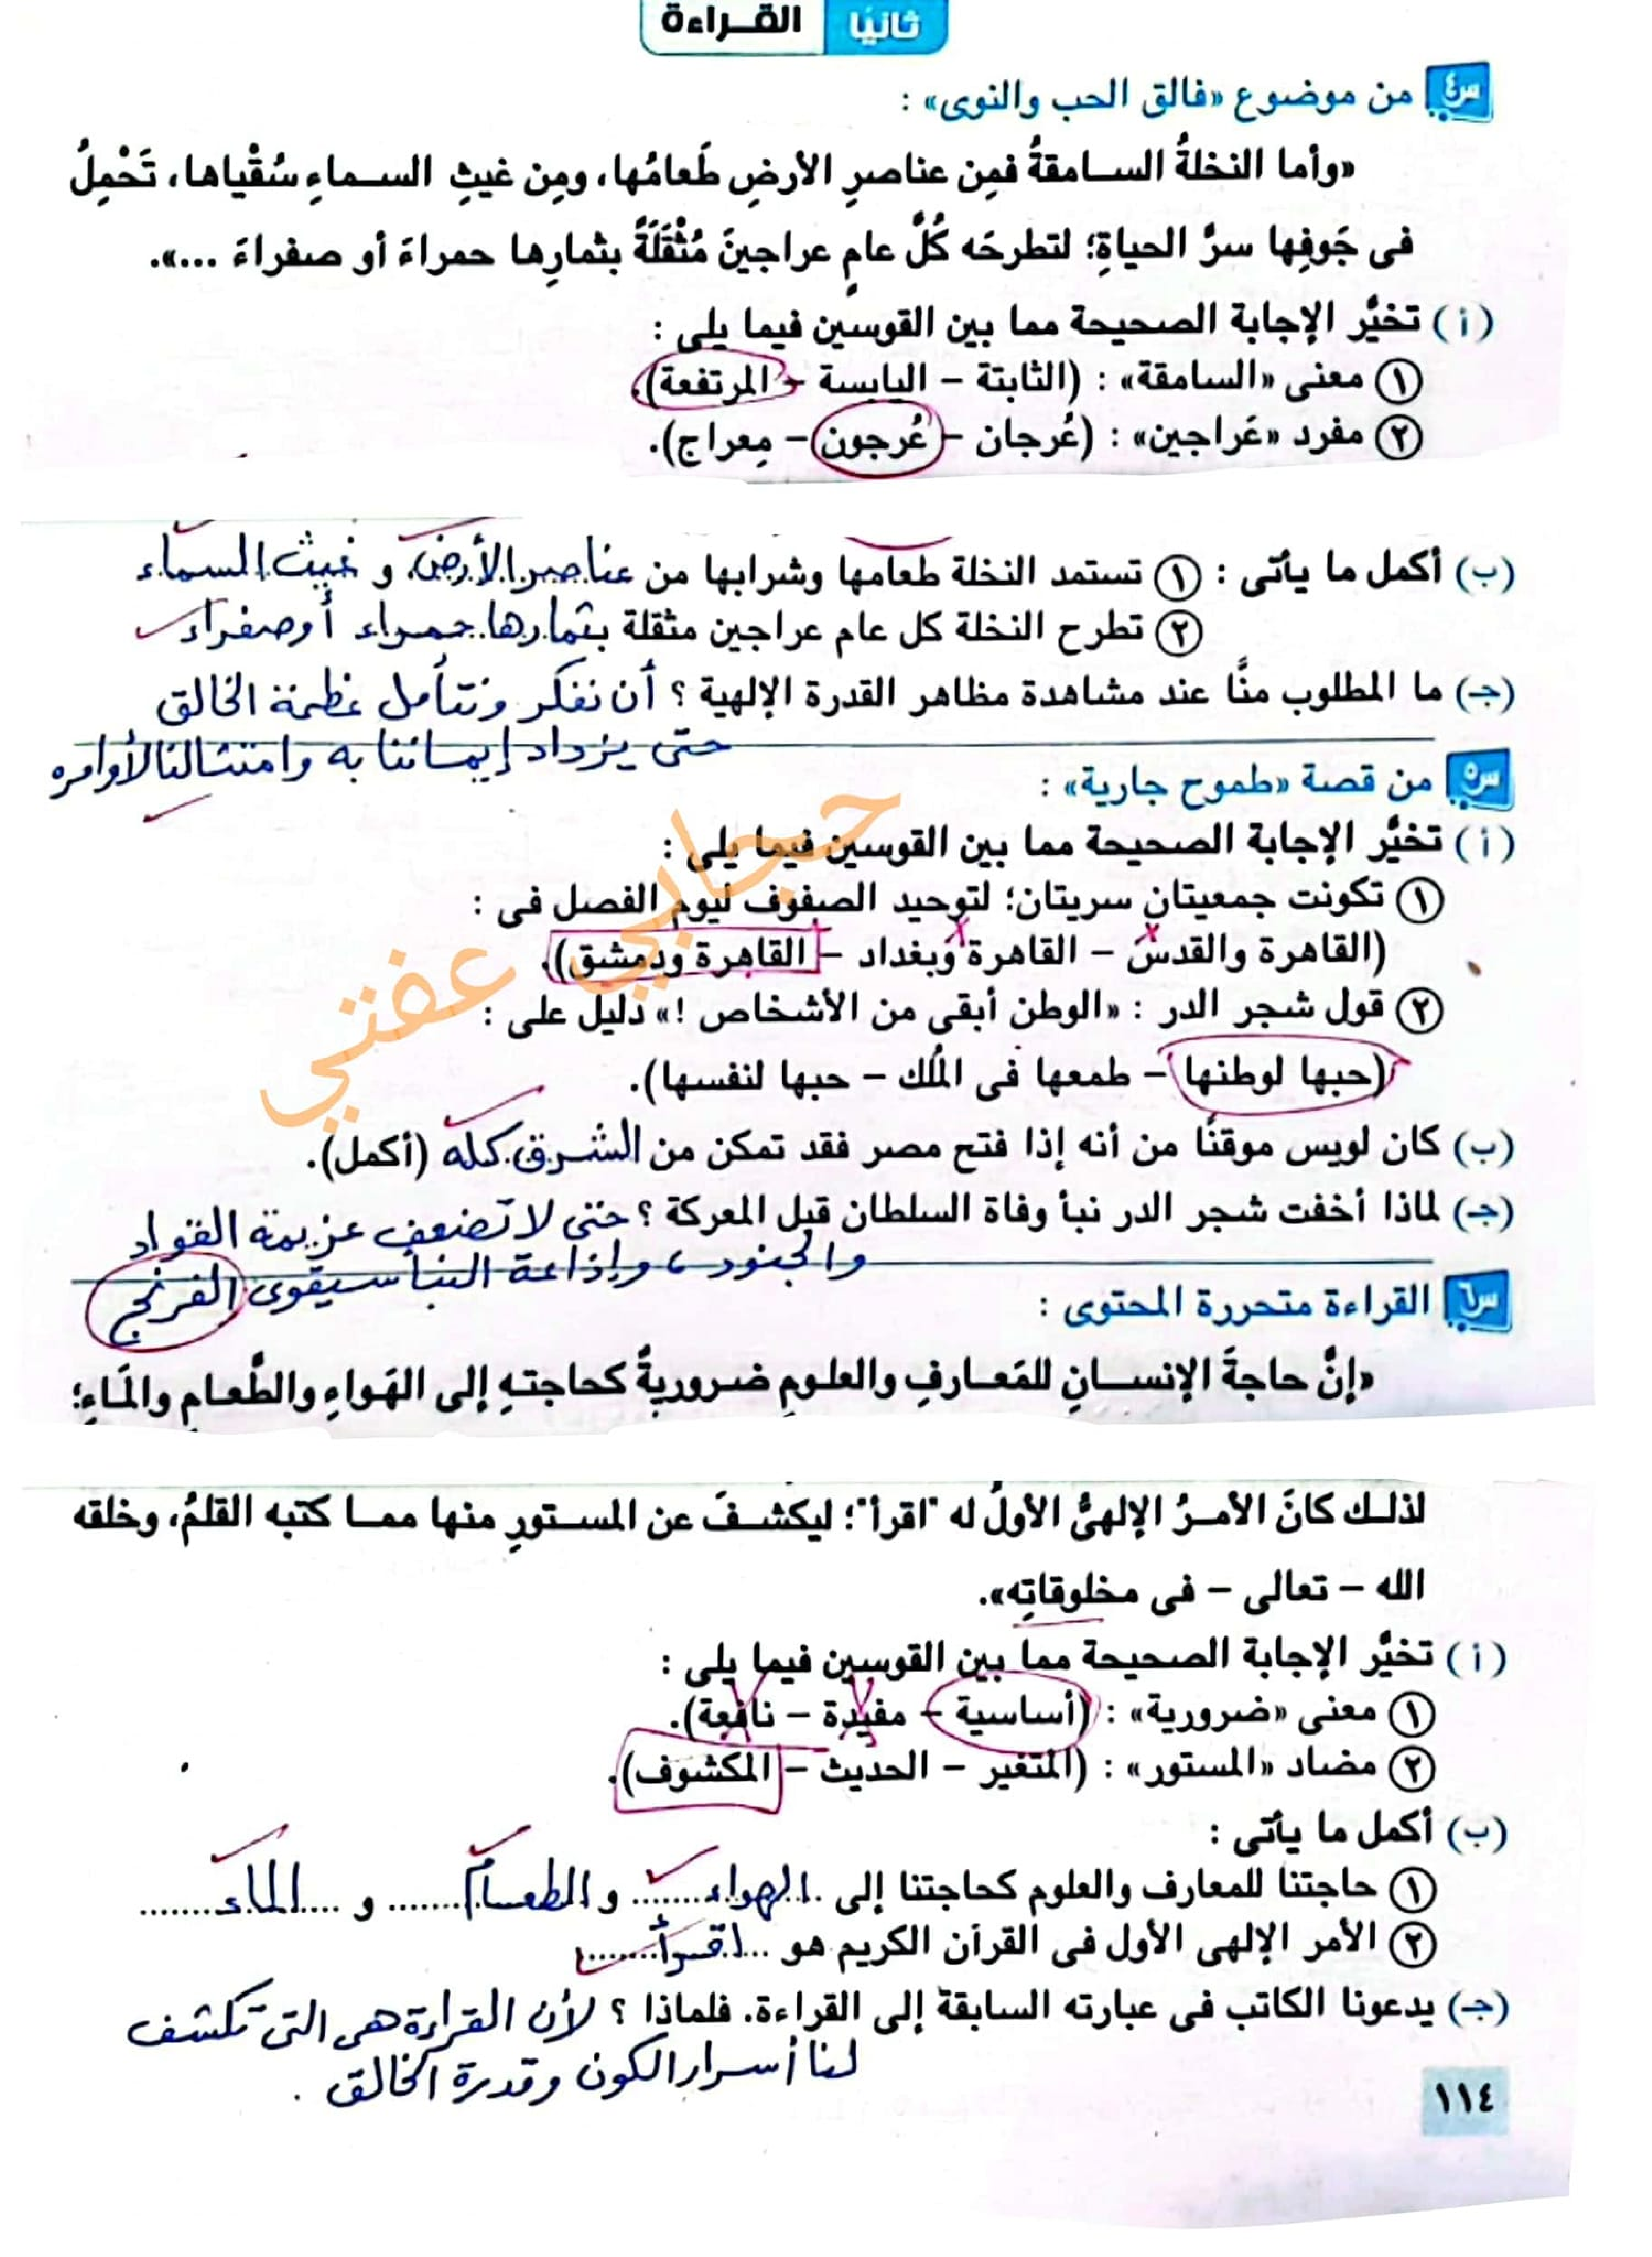 ثانيًا القـــراءة
س٤ من موضوع «فالق الحب والنوى» :
«وأما النخلةُ الســامقةُ فمِن عناصرِ الأرضِ طَعامُها، ومِن غيثِ الســماءِ سُقْياها، تَحْمِلُ
فى جَوفِها سرَّ الحياةِ؛ لتطرحَه كُلَّ عامٍ عراجينَ مُثْقَلَةً بثمارِها حمراءَ أو صفراءَ ...».
(أ) تخيَّر الإجابة الصحيحة مما بين القوسين فيما يلى :
① معنى «السامقة» : (الثابتة – اليابسة – المرتفعة).
② مفرد «عَراجين» : (عُرجان – عُرجون – مِعراج).
(ب) أكمل ما يأتى : ① تستمد النخلة طعامها وشرابها من عناصر الأرض و غيث السماء
② تطرح النخلة كل عام عراجين مثقلة بثمارها حمراء أو صفراء
(جـ) ما المطلوب منَّا عند مشاهدة مظاهر القدرة الإلهية ؟ أن نفكر ونتأمل عظمة الخالق
حتى يزداد إيماننا به وامتثالنا لأوامره
س٥ من قصة «طموح جارية» :
(أ) تخيَّر الإجابة الصحيحة مما بين القوسين فيما يلى :
① تكونت جمعيتان سريتان؛ لتوحيد الصفوف ليوم الفصل فى :
(القاهرة والقدس – القاهرة وبغداد – القاهرة ودمشق).
② قول شجر الدر : «الوطن أبقى من الأشخاص !» دليل على :
(حبها لوطنها – طمعها فى المُلك – حبها لنفسها).
(ب) كان لويس موقنًا من أنه إذا فتح مصر فقد تمكن من الشرق كله (أكمل).
(جـ) لماذا أخفت شجر الدر نبأ وفاة السلطان قبل المعركة ؟ حتى لا تضعف عزيمة القواد
والجنود، وإذاعة النبأ سيقوى الفرنج
س٦ القراءة متحررة المحتوى :
«إنَّ حاجةَ الإنســانِ للمَعــارفِ والعلومِ ضروريةٌ كحاجتهِ إلى الهَواءِ والطَّعــامِ والمَاءِ؛
لذلــك كانَ الأمــرُ الإلهىُّ الأولُ له "اقرأ"؛ ليكشــفَ عن المســتورِ منها ممــا كتبه القلمُ، وخلقه
الله – تعالى – فى مخلوقاتِه».
(أ) تخيَّر الإجابة الصحيحة مما بين القوسين فيما يلى :
① معنى «ضرورية» : (أساسية – مفيدة – نافعة).
② مضاد «المستور» : (المتغير – الحديث – المكشوف).
(ب) أكمل ما يأتى :
① حاجتنا للمعارف والعلوم كحاجتنا إلى الهواء و الطعام و الماء
② الأمر الإلهى الأول فى القرآن الكريم هو اقرأ
(جـ) يدعونا الكاتب فى عبارته السابقة إلى القراءة. فلماذا ؟ لأن القراءة هى التى تكشف
لنا أسرار الكون وقدرة الخالق .
١١٤
حجابي عفتي